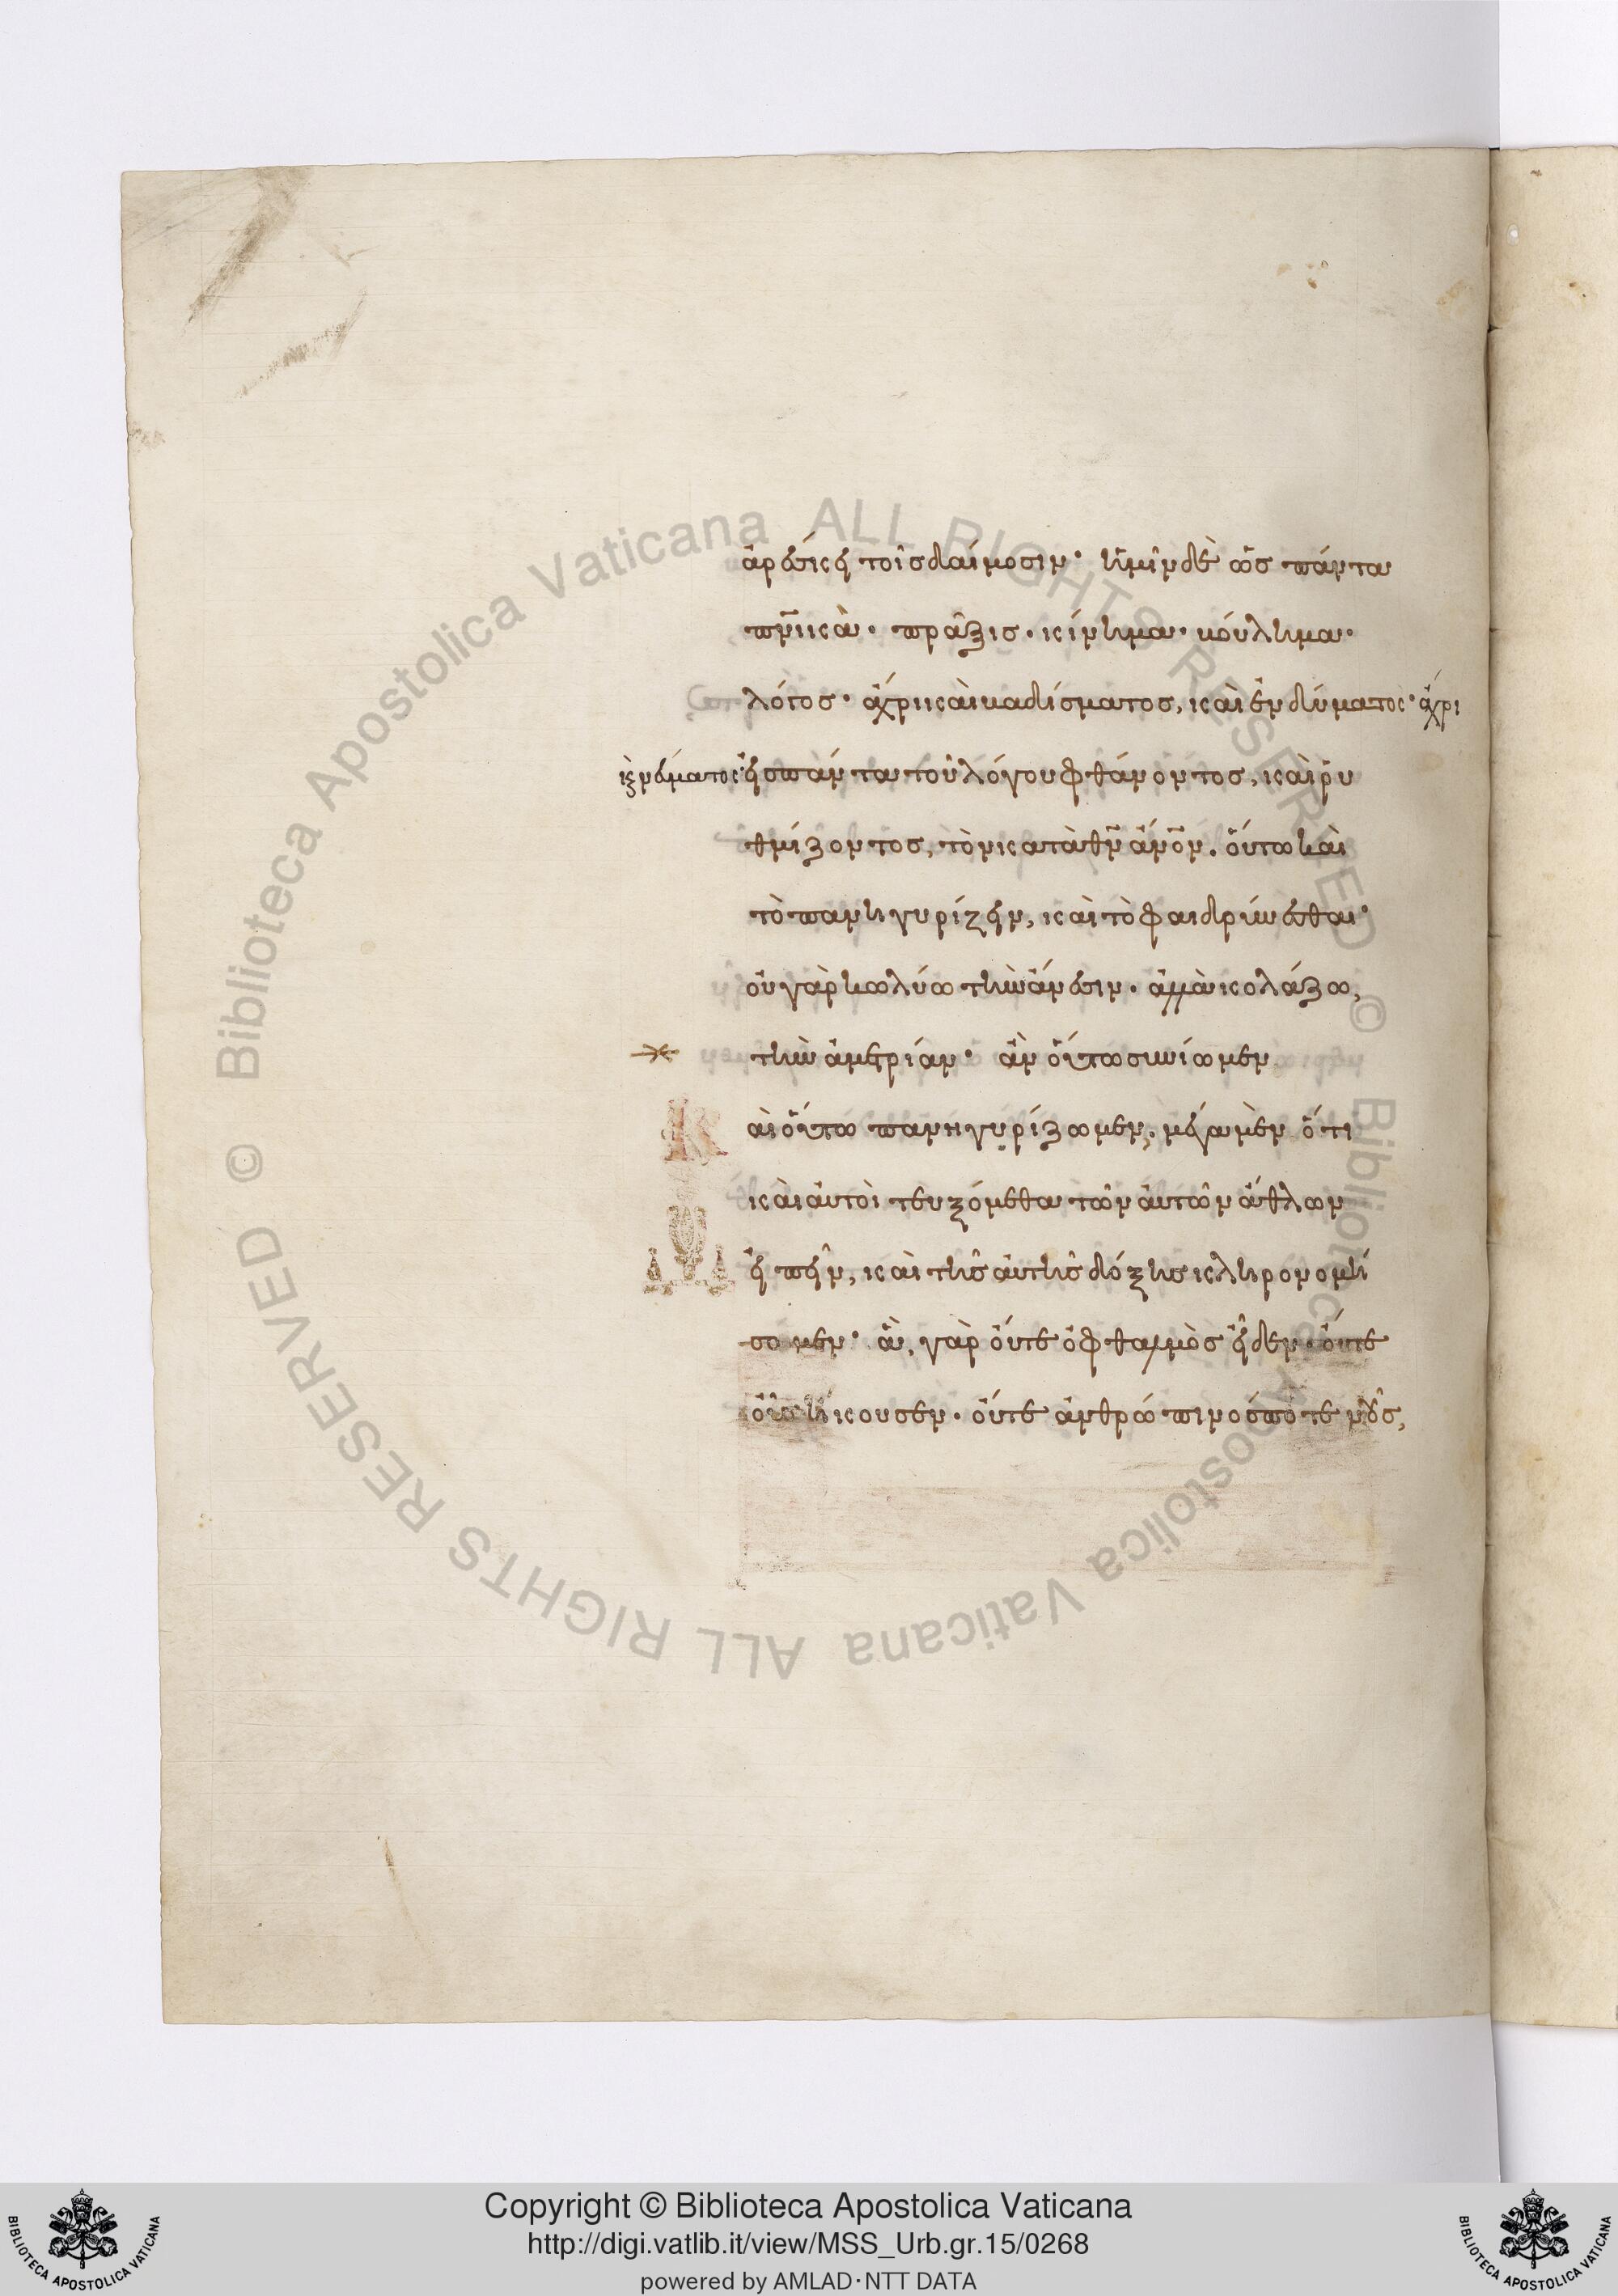 ἀρέσκει τοῖς δαίμοσιν· ἡμῖν δὲ ὡς πάντα
πν̅ικὰ· πρᾶξις· κίνημα· βούλημα·
λόγος· ἄχρι καὶ βαδίσματος, καὶ ἐνδύματος· ἄχρι
κ νεύματος· εἰς πάντα τοῦ λόγου φθάνοντος, καὶ ῥυ
θμίζοντος, τὸν κατὰ θν̅ ἄν̅ον. οὕτω καὶ
τὸ πανηγυρίζειν, καὶ τὸ φαιδρύνεσθαι·
οὐ γὰρ κωλύω τὴν ἄνεσιν· ἀλλὰ κολάζω,
τὴν ἀμετρίαν· ἂν οὕτω συνίωμεν
Καὶ οὕτω πανηγυρίζωμεν, μέγα μὲν ὅτι
καὶ αὐτοὶ τευξόμεθα τῶν αὐτῶν ἄθλων
εἰπεῖν, καὶ τῆς αὐτῆς δόξης κληρονομή
σομεν· ἃ, γὰρ οὔτε ὀφθαλμὸς εἶδεν· οὔτε
οὖς ἤκουσεν· οὔτε ἀνθρώπινός ποτε νοῦς,
Copyright © Biblioteca Apostolica Vaticana
http://digi.vatlib.it/view/MSS_Urb.gr.15/0268
powered by AMLAD·NTT DATA
BIBLIOTECA APOSTOLICA VATICANA
BIBLIOTECA APOSTOLICA VATICANA
© Biblioteca Apostolica Vaticana ALL RIGHTS RESERVED
© Biblioteca Apostolica Vaticana ALL RIGHTS RESERVED